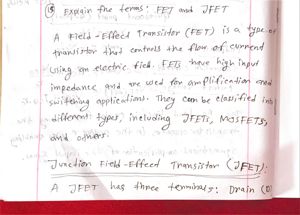 (15) Explain the terms: FET and JFET
A Field-Effect Transistor (FET) is a type of
transistor that controls the flow of current
using an electric field. FETs have high input
impedance and are used for amplification and
switching applications. They can be classified into
different types, including JFETs, MOSFETs,
and others.
Junction Field-Effect Transistor (JFET):
A JFET has three terminals: Drain (D)